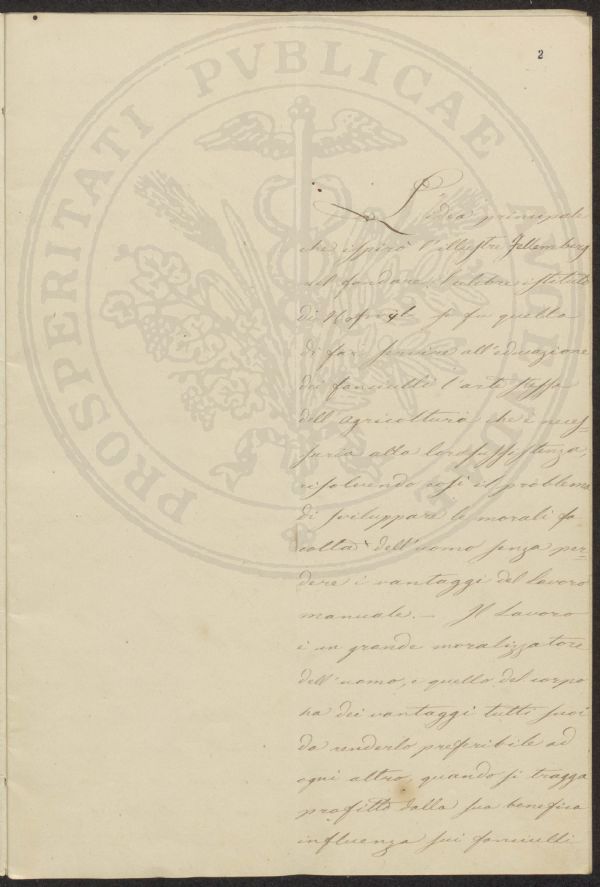 2
L'idea principale
che ispirò l'illustre Fellemberg
nel fondare il celebre istituto
di Hofwyl si fu quella
di far servire all'educazione
dei fanciulli l'arte stessa
dell'agricoltura che è neces-
saria alla loro sussistenza,
risolvendo così il problema
di sviluppare le morali fa
coltà dell'uomo senza per=
dere i vantaggi del lavoro
manuale. — Il Lavoro
è un grande moralizzatore
dell'uomo, e quello del corpo
ha dei vantaggi tutti suoi
da renderlo preferibile ad
ogni altro, quando si tragga
profitto dalla sua benefica
influenza sui fanciulli
PROSPERITATI PVBLICAE AVGENDAE